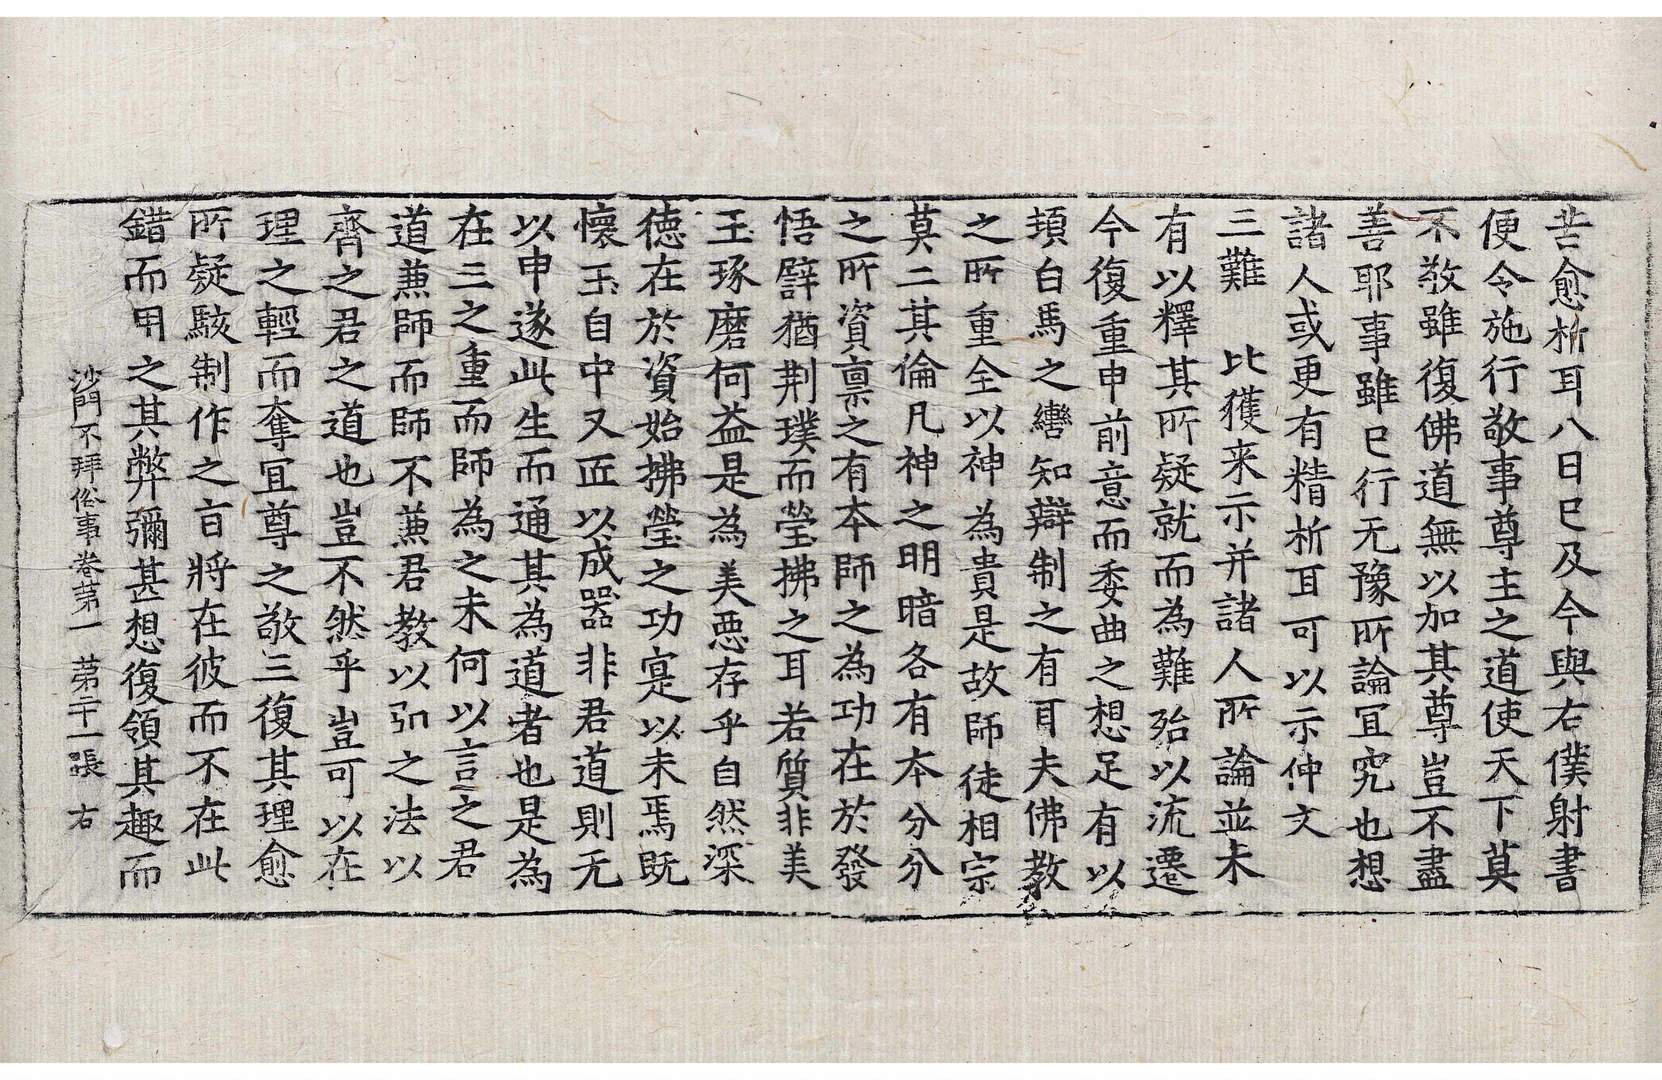 苦愈析耳八日已及今與右僕射書
便令施行敬事尊主之道使天下莫
不敬雖復佛道無以加其尊豈不盡
善耶事雖已行无豫所論冝究也想
諸人或更有精析耳可以示仲文
三難　比獲来示并諸人所論並未
有以釋其所疑就而為難殆以流遷
今復重申前意而委曲之想足有以
頓白馬之轡知辯制之有耳夫佛教
之所重全以神為貴是故師徒相宗
莫二其倫凡神之明暗各有本分分
之所資禀之有本師之為功在於發
悟譬猶荆璞而瑩拂之耳若質非美
玉琢磨何益是為美悪存乎自然深
徳在於資始拂瑩之功寔以未焉既
懷玉自中又匠以成器非君道則无
以申遂此生而通其為道者也是為
在三之重而師為之未何以言之君
道兼師而師不兼君教以弘之法以
齊之君之道也豈不然乎豈可以在
理之輕而奪冝尊之敬三復其理愈
所疑駭制作之㫖將在彼而不在此
錯而用之其弊彌甚想復領其趣而
沙門不拜俗事卷苐一　苐二十一張　右